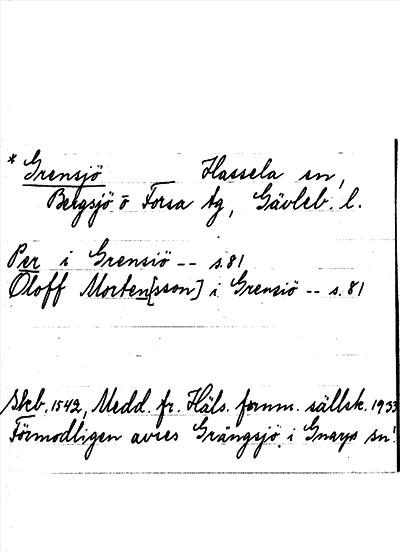 * Grensjö Hassela sn,
Bergsjö o Forsa tg, Gävleb. l.
Per i Grensiö -- s. 81
Oloff Morten[sson] i Grensiö -- s. 81
Skb. 1542, Medd. fr. Häls. fornm. sällsk. 1933
Förmodligen avses Grängsjö i Gnarps sn!